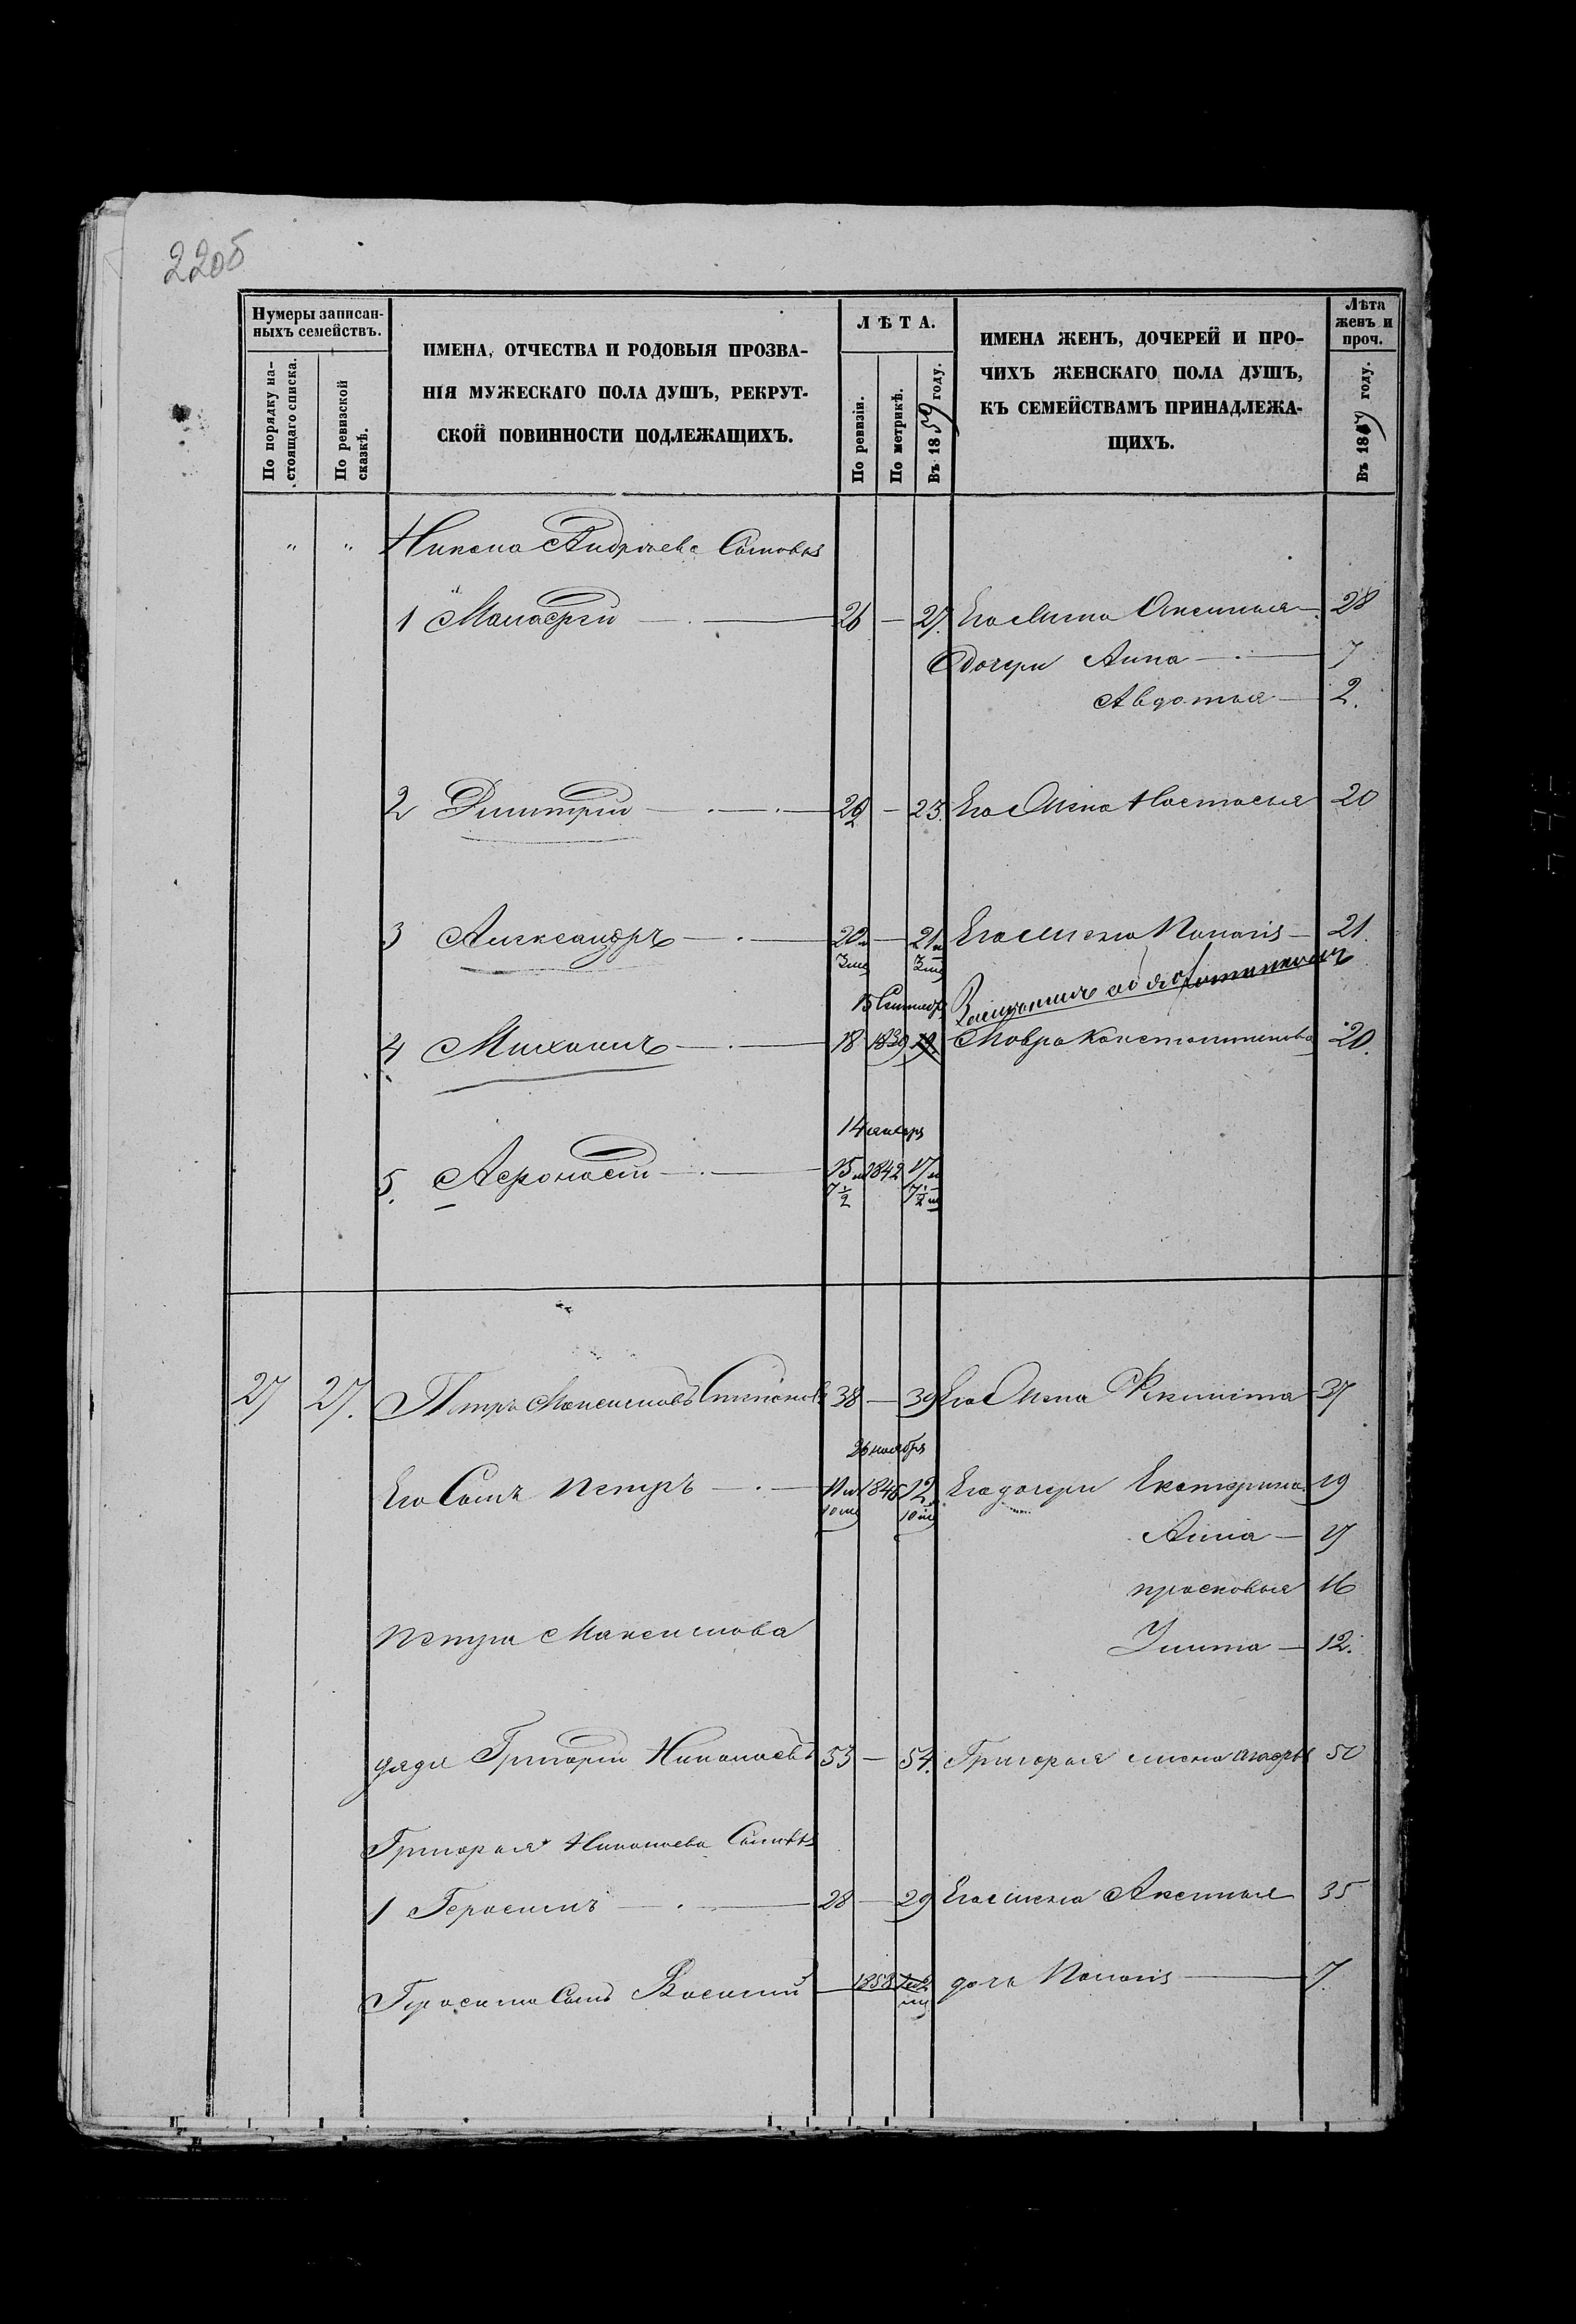 2205
Нумеры записан-
ныхъ семействъ.
По порядку на-
стоящаго списка.
По ревизской
сказкѣ.
ИМЕНА, ОТЧЕСТВА И РОДОВЫЯ ПРОЗВА-
НІЯ МУЖЕСКАГО ПОЛА ДУШЪ, РЕКРУТ-
СКОЙ ПОВИННОСТИ ПОДЛЕЖАЩИХЪ.
ЛѢТА.
По ревизіи.
По метрикѣ.
Въ 1859 году.
ИМЕНА ЖЕНЪ, ДОЧЕРЕЙ И ПРО-
ЧИХЪ ЖЕНСКАГО ПОЛА ДУШЪ,
КЪ СЕМЕЙСТВАМЪ ПРИНАДЛЕЖА-
ЩИХЪ.
Лѣта
женъ и
проч.
Въ 1859 году.
" " Андреева Сыновья
1 26 — 27. Его Жена Аксинья 28
дочери Анна — 7
Авдотья — 2.
2 Дмитрій — 23. Его Жена Настасья 20
3 Александръ — 20 — 21 Его жена — 21
15 Сентябр
4 Михаилъ — 18 1839 19 Мавра Константинова 20.
14 январ
5. — 15 1842 17
7½ 7½
27 27. Петръ Максимовъ 38 — 39 Его Жена 37
26 ноября
Его Сынъ Петръ — 11 1846 12 Его дочери Екатерина 19
10 10
Анна — 17
прасковья 16
Петра Максимова
Улита — 12.
дядя Григорій 53 — 54. Григорья жена 50
Григорья Сыновья
1 Герасимъ — 28 — 29 Его жена Аксинья 35
Герасима Сынъ Василий — 1858 дочь — 7.